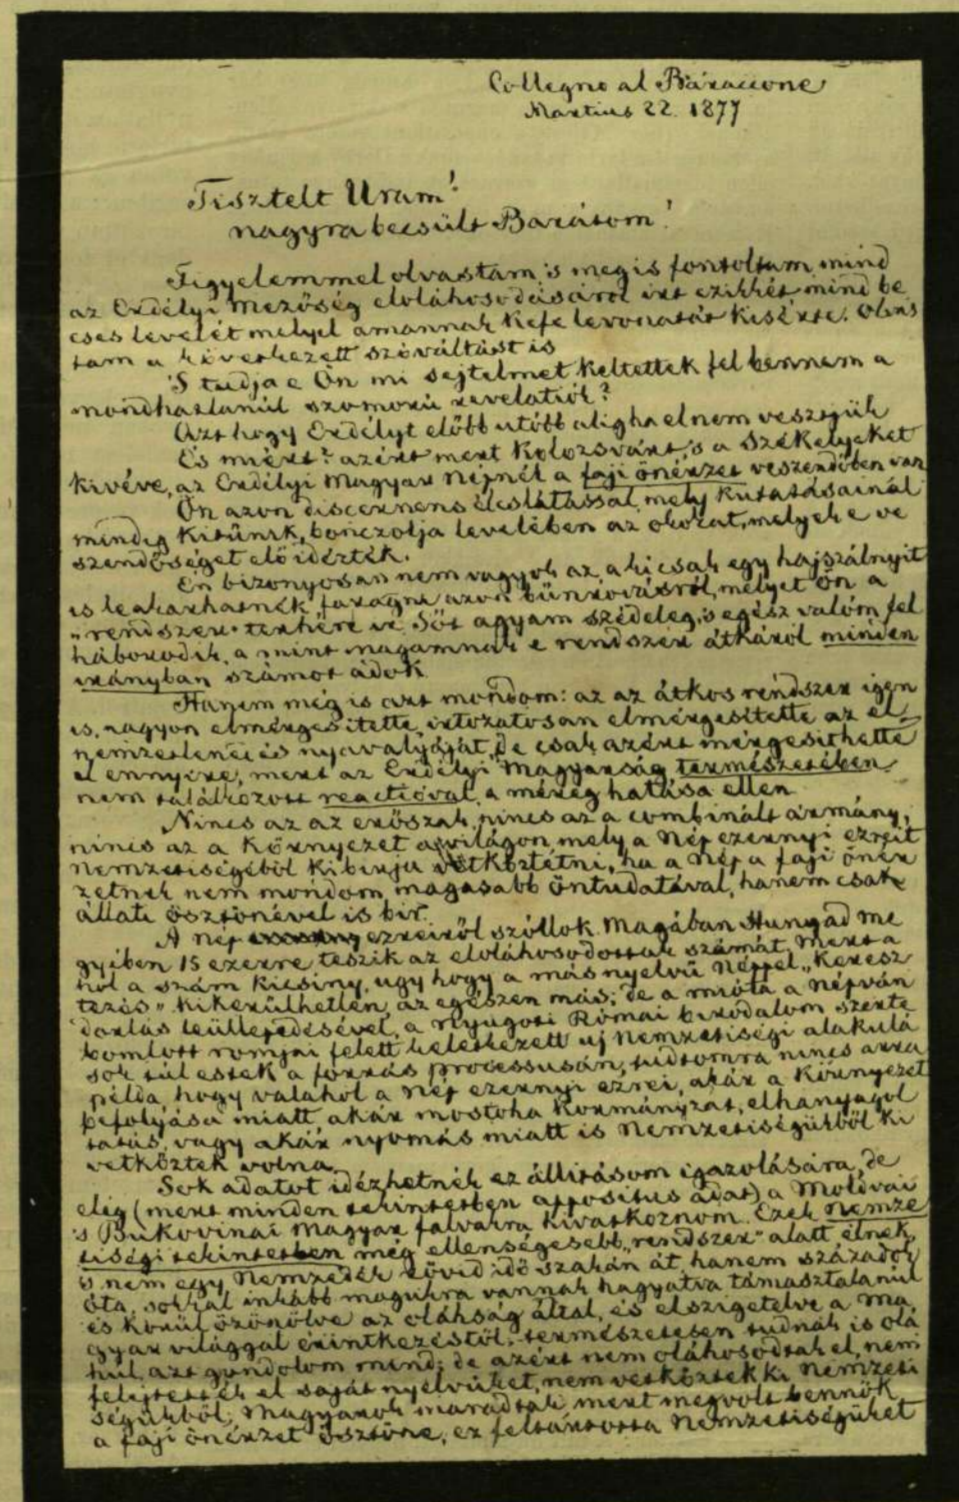 Collegno al Baraccone
Martius 22. 1877
Tisztelt Uram!
nagyra becsült Barátom!
Figyelemmel olvastam 's meg is fontoltam mind
az Erdélyi Mezőség eloláhosodásáról irt czikkét mind be
cses levelét melyel amannak kefe levonatát kisérte. Olvas
tam a következett szóváltást is
'S tudja e Ön mi sejtelmet keltettek fel bennem a
mondhatlanúl szomorú revelatiók?
Azt hogy Erdélyt előbb utóbb aligha el nem vesztjük
És miért? azért mert Kolozsvárt 's a Székelyeket
kivéve, az Erdélyi Magyar Népnél a faji önérzet veszendőben van
Ön azon discernens éleslátással, mely kutatásainál
mindég kitűnik, bonczolja levelében az okokat, melyek e ve
szendőséget elő idézték.
Én bizonyosan nem vagyok az, a ki csak egy hajszálnyit
is le akarhatnék faragni azon bűnrovásról, melyet Ön a
„rendszer" terhére ró. Sőt agyam szédeleg, 's egész valóm fel
háborodik, a mint magamnak e rendszer átkáról minden
irányban számot adok
Hanem még is azt mondom: az az átkos rendszer igen
is, nagyon elmérgesitette, irtozatosan elmérgesítette az el
nemzetlenedés nyavalyáját, de csak azért mérgesithette
el ennyire, mert az Erdélyi Magyarság természetében
nem találkozott reactióval, a méreg hatása ellen
Nincs az az erőszak, nincs az a combinált ármány,
nincs az a környezet a világon, mely a Nép ezernyi ezreit
Nemzetiségéből ki birja vetkőztetni, ha a Nép a faji önér
zetnek nem mondom, magasabb öntudatával, hanem csak
állati ösztönével is bir.
A nép ezreiről szóllok. Magában Hunyad me
gyében 15 ezerre teszik az eloláhosodottak számát. Mert a
hol a szám kicsiny, ugy hogy a más nyelvű Néppel „keresz
tezés" kikerülhetlen, az egészen más; de a mióta a népván
dorlás leüllepedésével, a nyugoti Római birodalom szerte
bomlott romjai felett keletkezett uj Nemzetiségi alakulá
sok túl estek a forrás processusán, tudtomra nincs arra
példa, hogy valahol a Nép ezernyi ezrei, akár a környezet
befolyása miatt, akár mostoha kormányzat, elhanyagol
tatás, vagy akár nyomás miatt is Nemzetiségükből ki
vetkőztek volna.
Sok adatot idézhetnék ez állitásom igazolására, de
elég (mert minden tekintetben appositus adat) a Moldvai
's Bukovinai Magyar falvakra hivatkoznom. Ezek nemze
tiségi tekintetben még ellenségesebb „rendszer" alatt élnek,
's nem egy Nemzedék rövid idő szakán át, hanem századok
óta, sokkal inkább magukra vannak hagyatva támasztalanul
és körül özönölve az oláhság által, és elszigetelve a Ma,
gyar világgal érintkezéstől, természetesen tudnak is olá
húl, azt gondolom mind; de azért nem oláhosodtak el, nem
felejtették el saját nyelvüket, nem vetkőztek ki Nemzeti
ségükből, Magyarok maradtak mert megvolt bennök
a faji önérzet ösztöne, ez feltartotta Nemzetiségüket